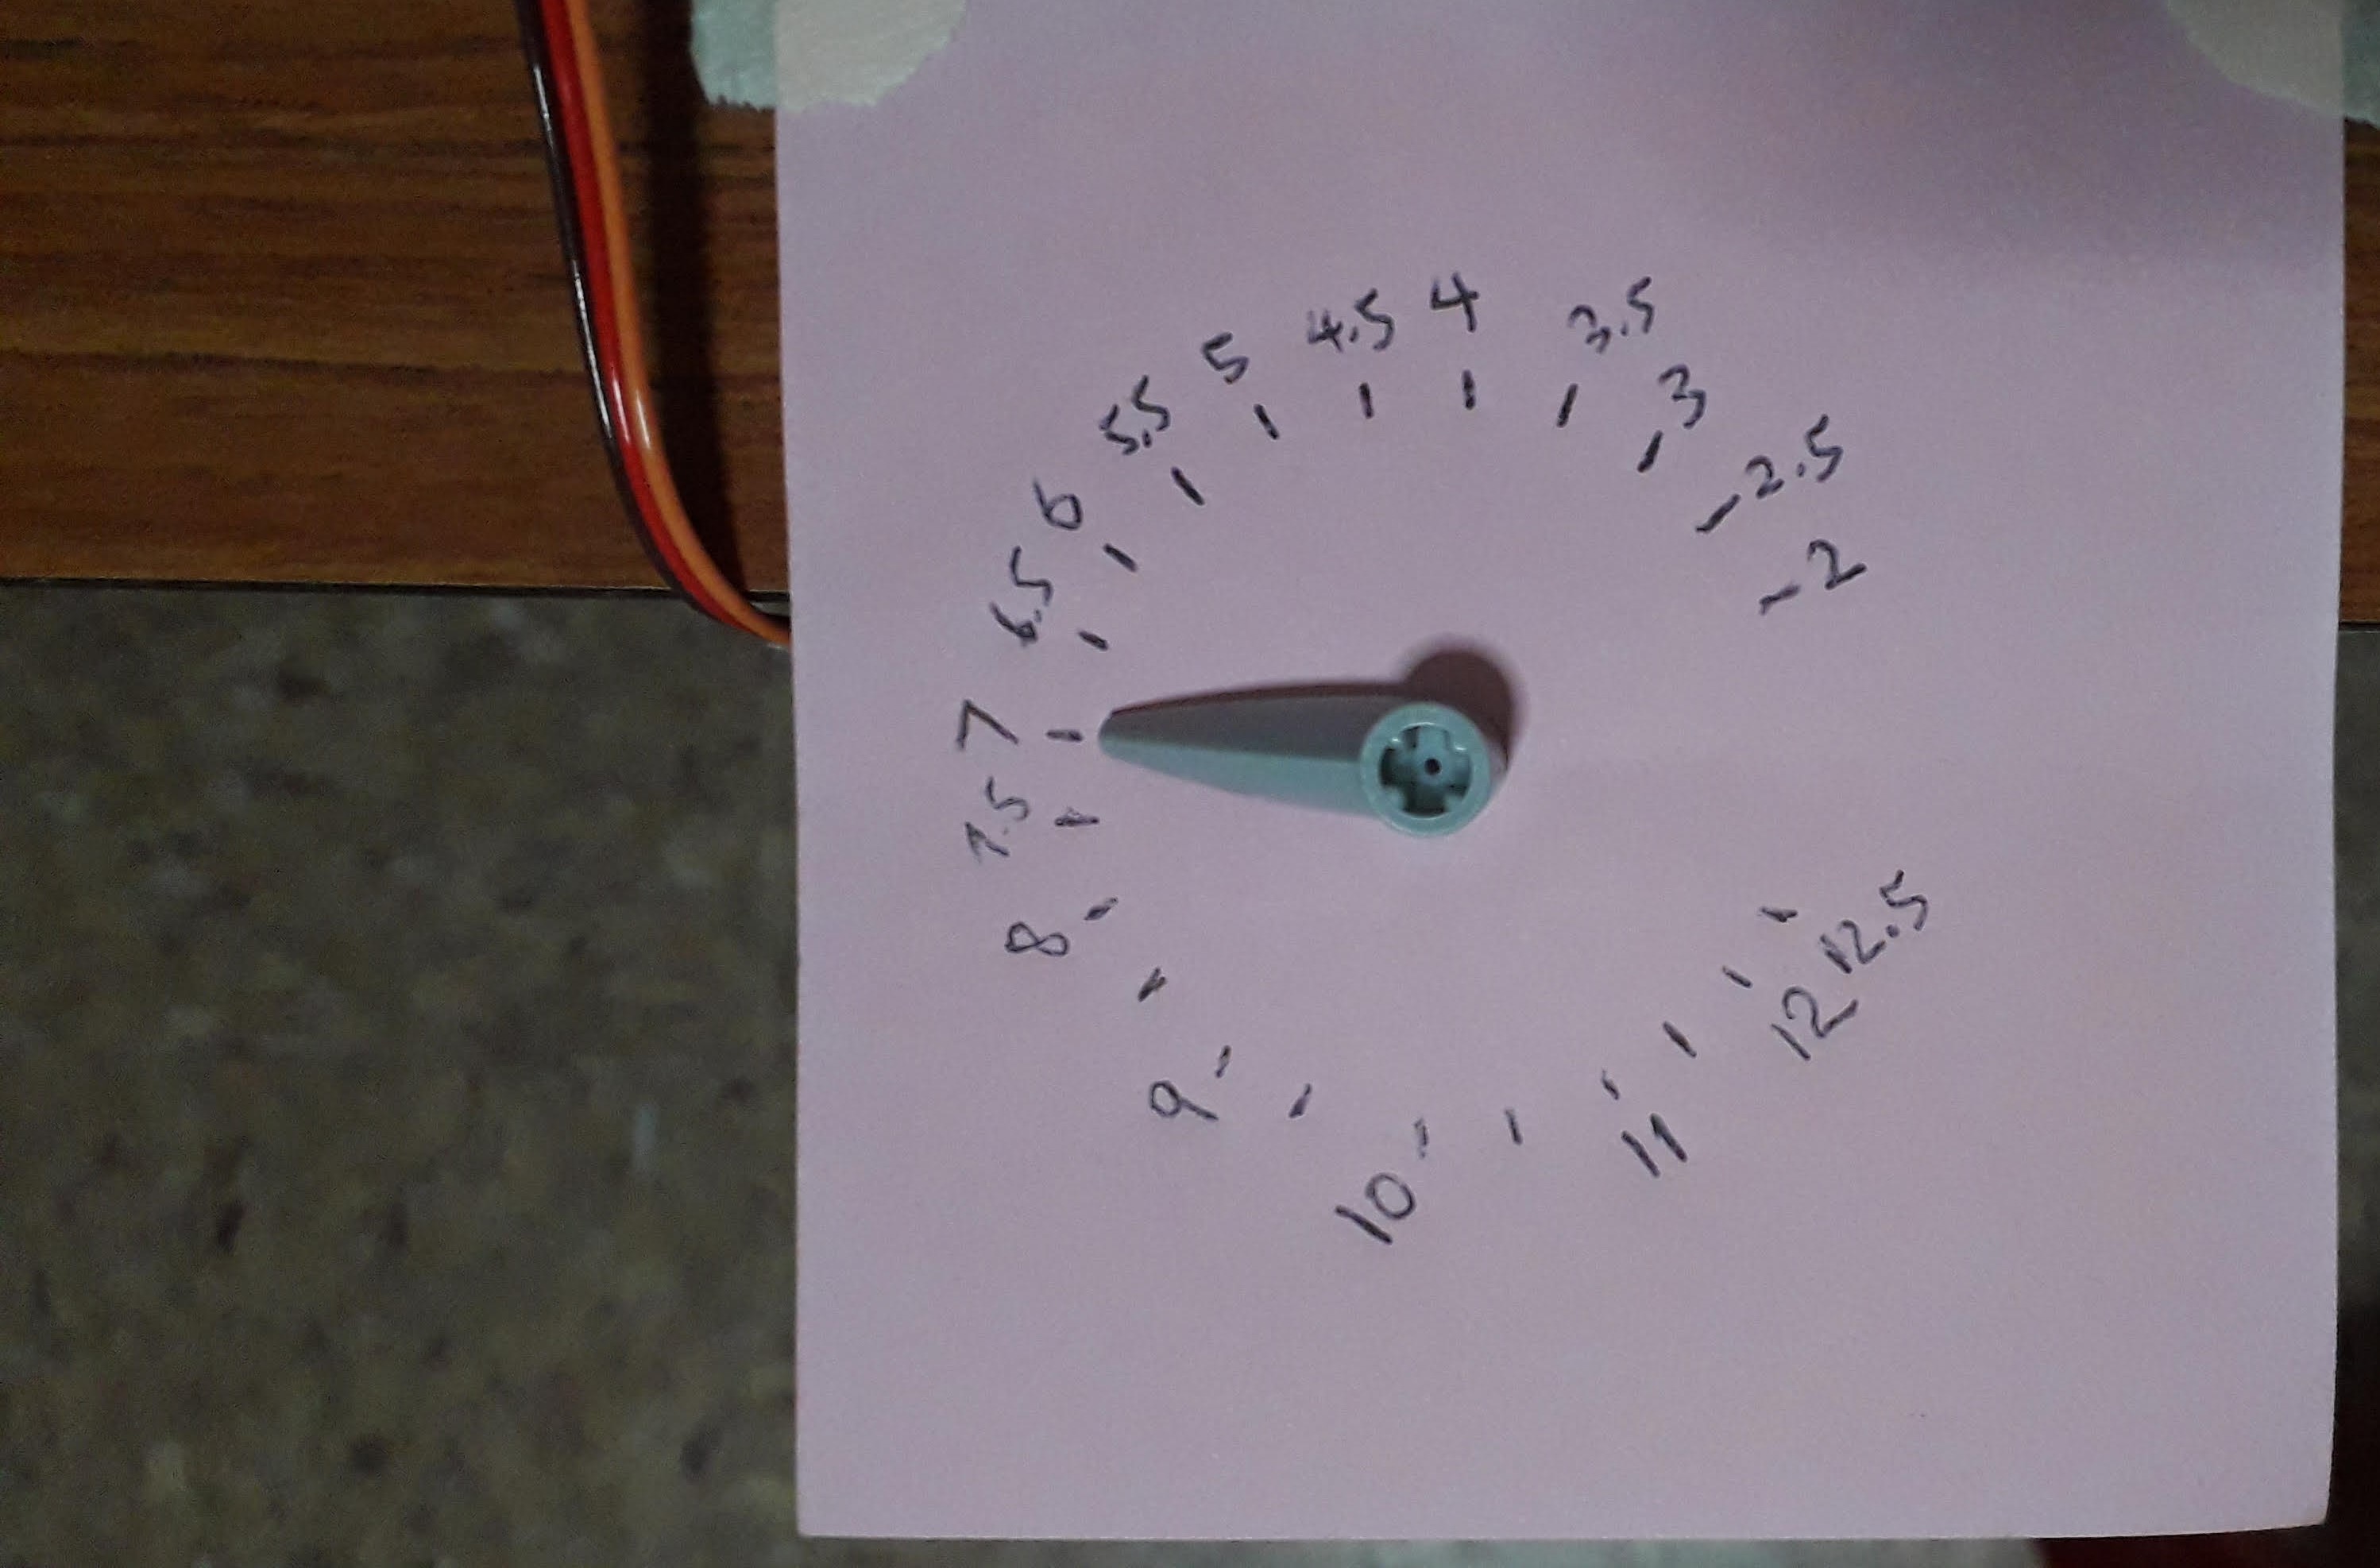 2
2.5
3
3.5
4
4.5
5
5.5
6
6.5
7
7.5
8
9
10
11
12
12.5